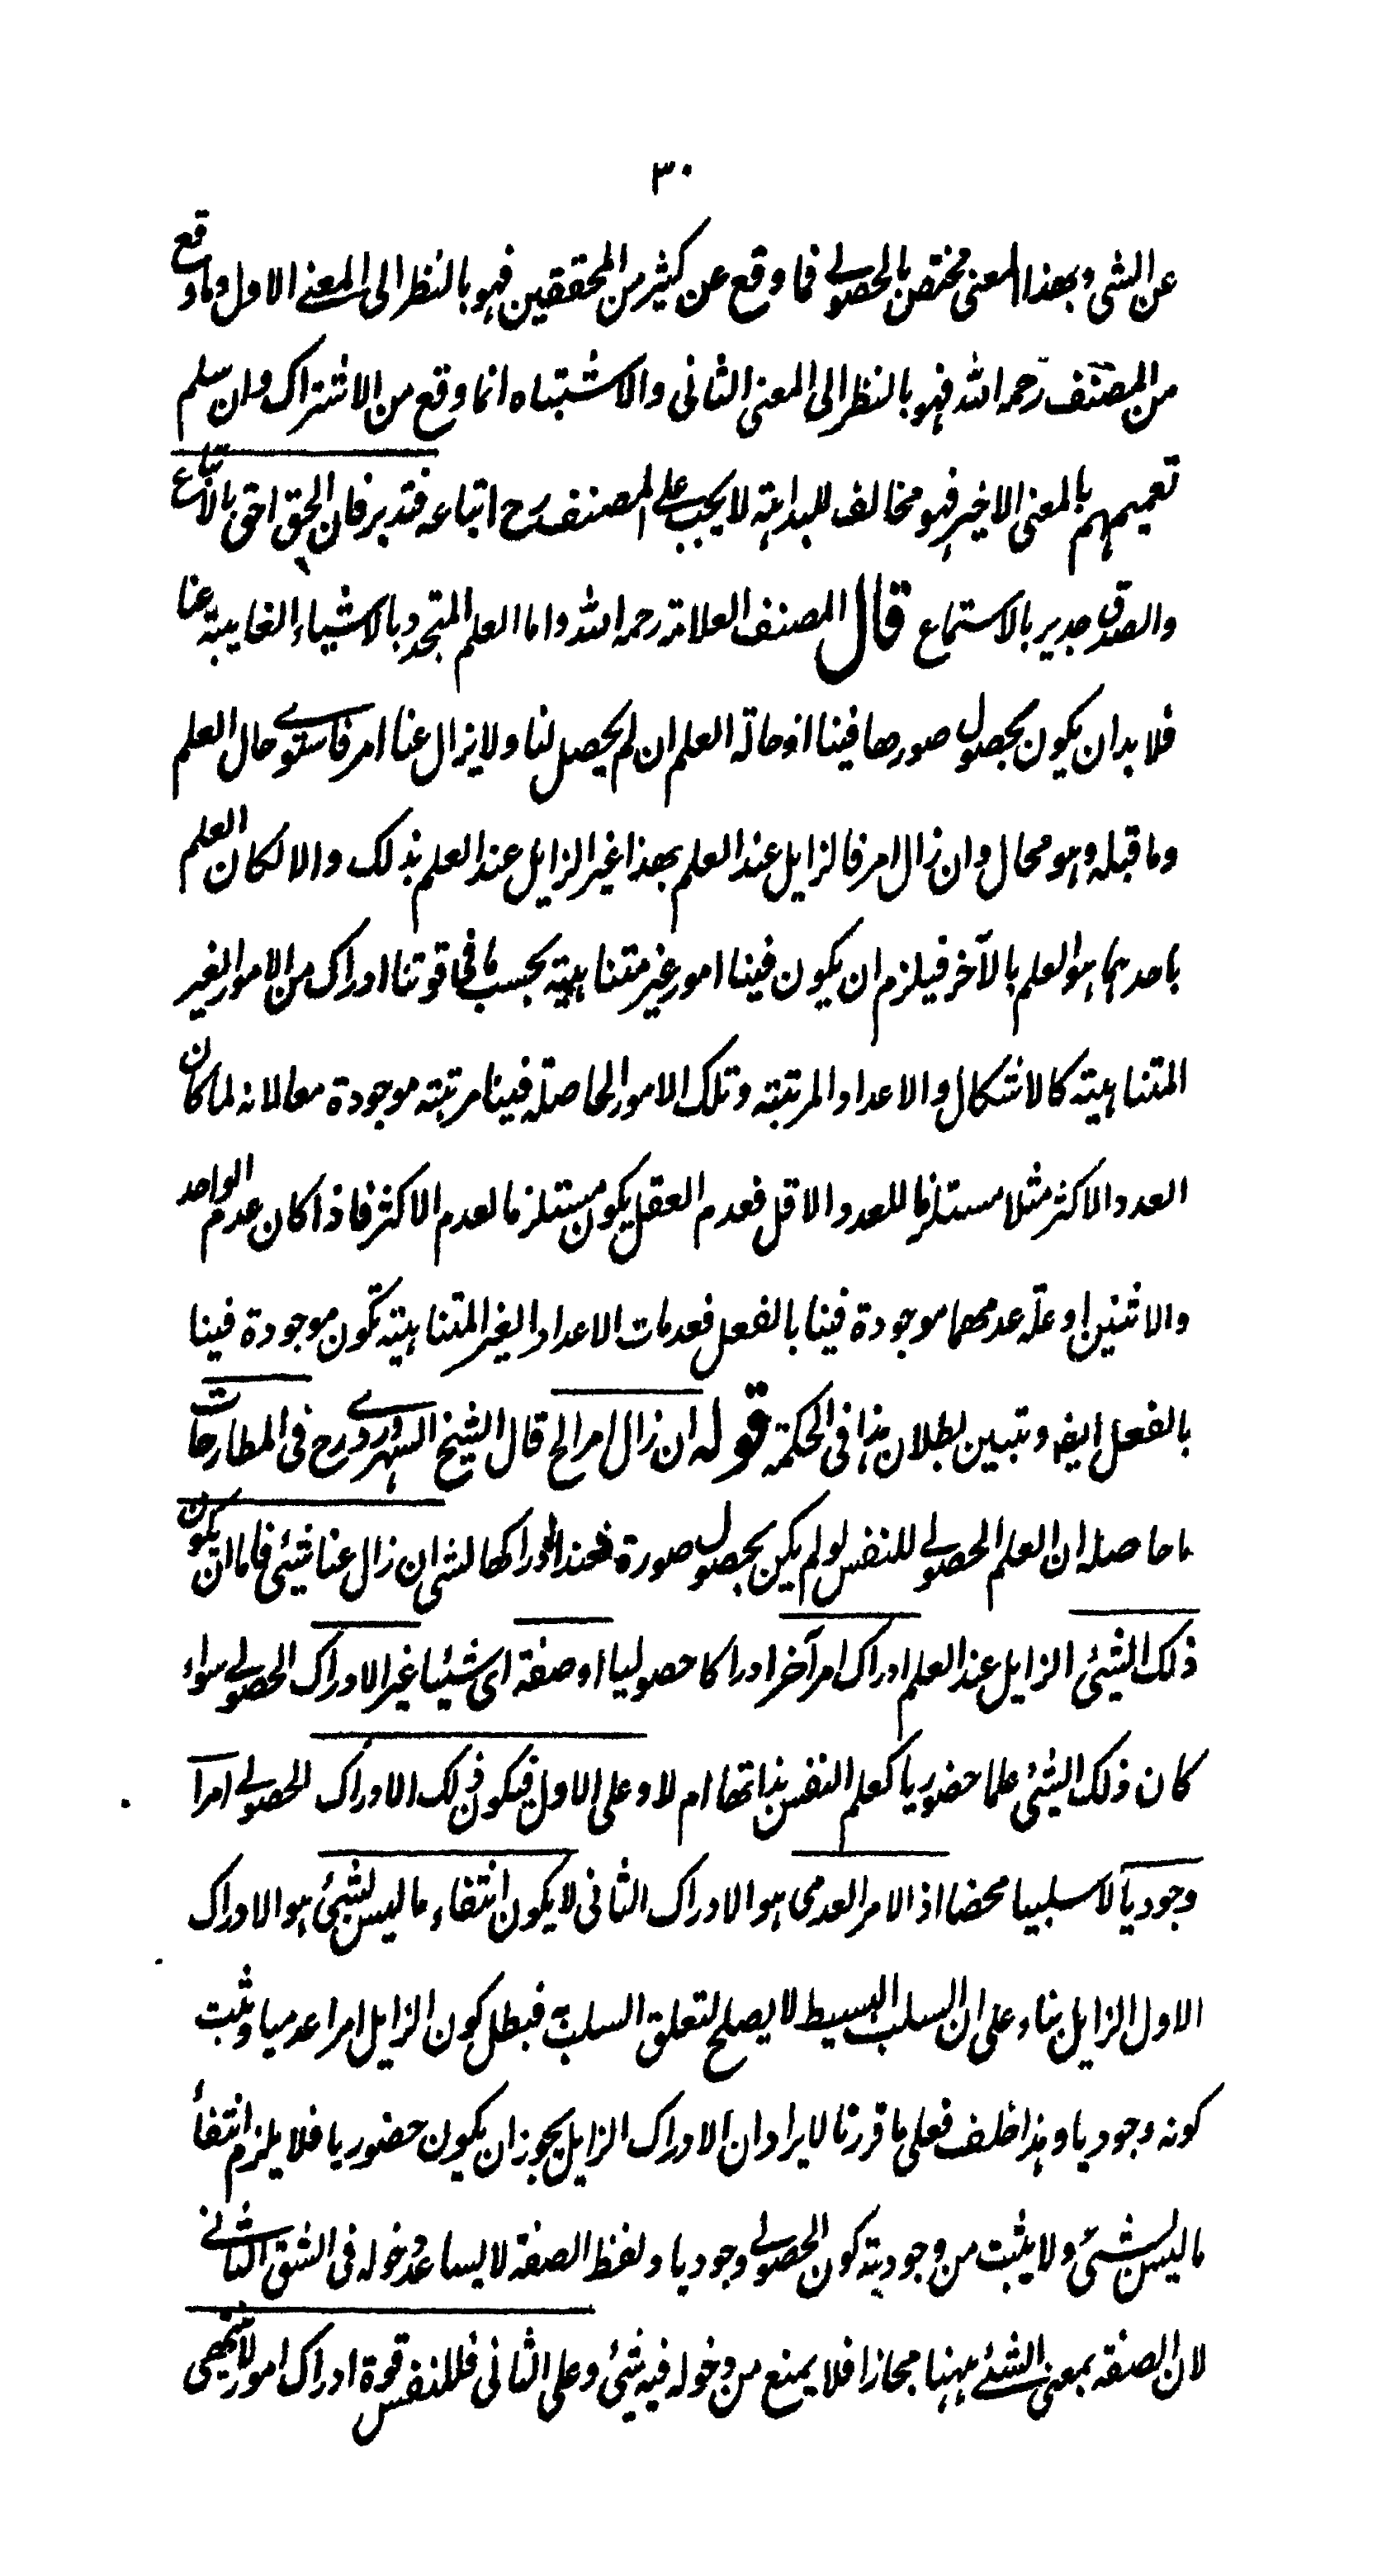 ٣٠
عن الشئ وبهذا المعنى مختص بالحصولے فما وقع عن كثير من المحققين فهو بالنظر الى المعنے الاول وما وقع
من المصنف رحمه الله فهو بالنظر الى المعنى الثانى والاشتباه انما وقع من الاشتراك وان سلم
تعميمهم بالمعنى الاخير فهو مخالف للبداهته لا يجب على المصنف رح اتباعه فتدبر فان الحق احق بالاتباع
والصدق جدير بالاستماع قال المصنف العلامة رحمه الله واما العلم المتجدد بالاشياء الغايبة عنا
فلا بد ان يكون بحصول صورها فينا اذ حالة العلم ان لم يحصل لنا ولا يزال عنا امر فاستوے حال العلم
وما قبله وهو محال وان زال امر فالزايل عند العلم بهذا غير الزايل عند العلم بذلك والا لكان العلم
باحدهما هو العلم بالآخر فيلزم ان يكون فينا امور غير متناهية بحسب ما فى قوتنا ادراك من الامور الغير
المتناهية كالاشكال والاعداد المرتبته وتلك الامور الحاصلة فينا مرتبته موجودة معا لانه لما كان
العدد الاكثر مثلا مستلزما للعدد الاقل فعدم العقل يكون مستلزما لعدم الاكثر فاذا كان عدم الواحد
والاثنين او علة عدمهما موجودة فينا بالفعل فعدمات الاعداد الغير المتناهية تكون موجودة فينا
بالفعل ايضا وتبين بطلان هذا فى الحكمة قوله ان زال امر الخ قال الشيخ السهروردے رح فى المطارحات
ما حاصله ان العلم الحصولے للنفس لو لم يكن بحصول صورة فعند ادراكها لشئ ان زال عنا شئ فاما ان يكون
ذلك الشئ الزايل عند العلم ادراك امر آخر ادراكا حصوليا او صفة اى شيئا غير الادراك الحصولے سواء
كان ذلك الشئ علما حضوريا كعلم النفس بذاتها ام لا وعلى الاول فيكون ذلك الادراك الحصولے امرا
وجوديا لا سلبيا محضا اذ الامر العدمى هو الادراك الثانى لا يكون انتفاء ما ليس بشئ هو الادراك
الاول الزايل بناء على ان السلب البسيط لا يصلح لتعلق السلب به فبطل كون الزايل امرا عدميا وثبت
كونه وجوديا وهذا خلف فعلى ما قررنا لا يراد ان الادراك الزايل يجوز ان يكون حضوريا فلا يلزم انتفاء
ما ليس بشئ ولا يثبت من وجودية كون الحصولے وجوديا ولفظ الصفة لا يساعد دخوله فى الشق الثانے
لان الصفة بمعنى الشئ ههنا مجازا فلا يمنع من دخوله فيه شئ وعلى الثانى فللنفس قوة ادراك امور لا تتناهى